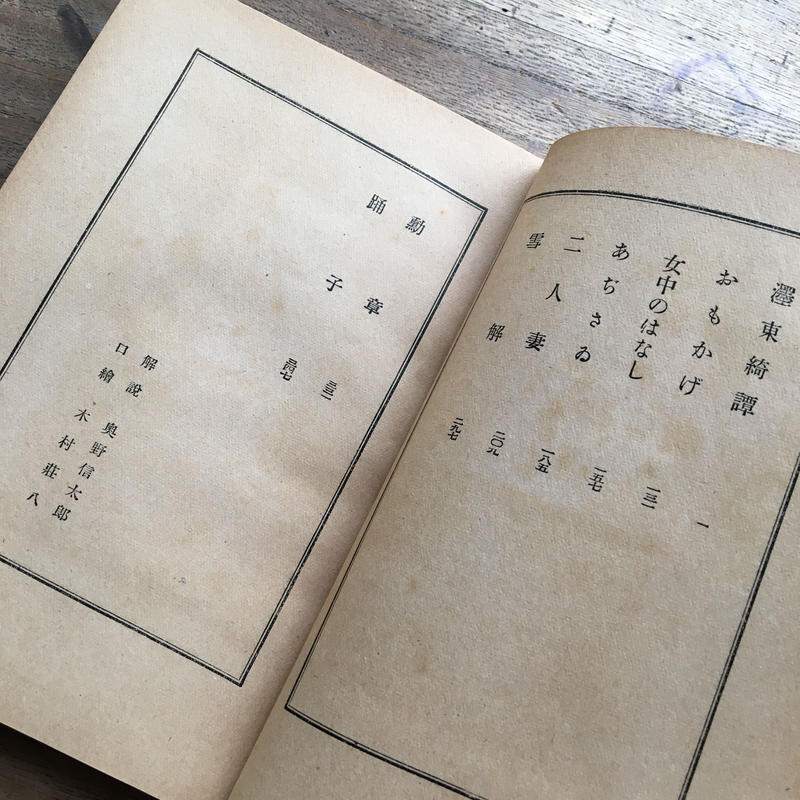 濹東綺譚 一
おもかげ 一三一
女中のはなし 一五七
あぢさゐ 一八五
二人妻 二〇九
雪解 二九七
勳章
踊子 三四七
解說 奥野信太郎
口繪 木村莊八